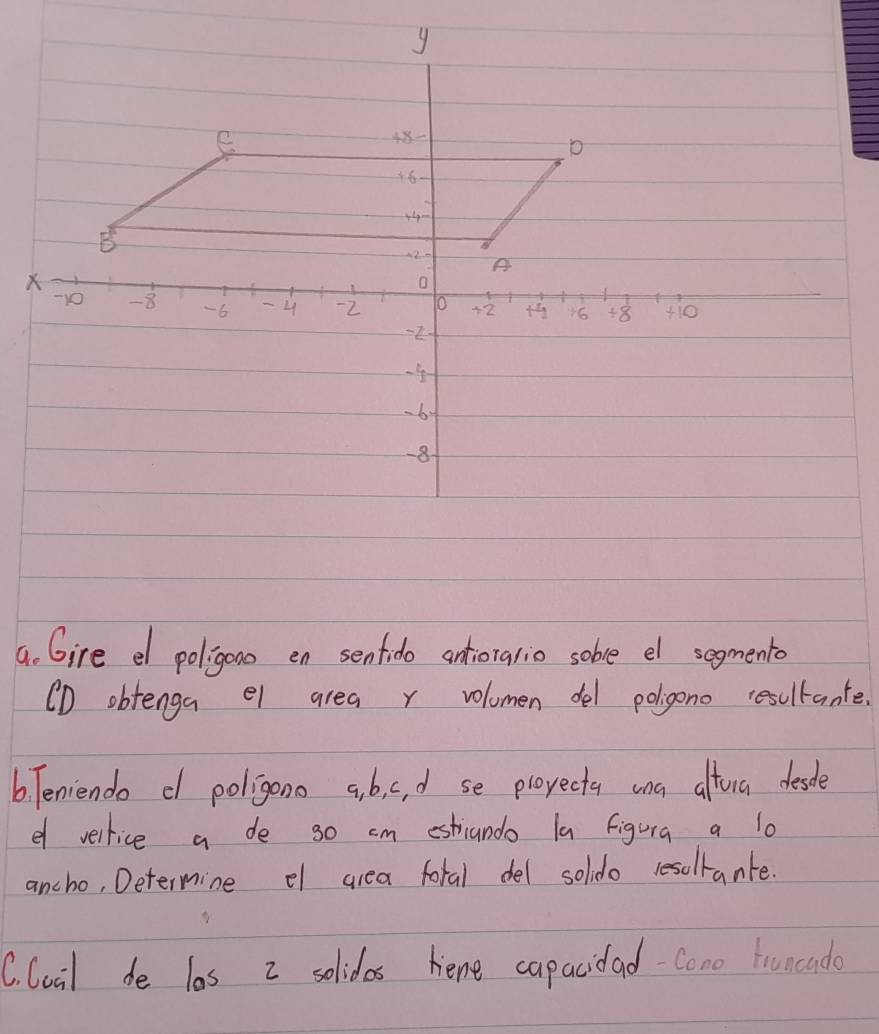 y
C +8 D
+6
+4
B +2 A
x 0
-10 -8 -6 -4 -2 0 +2 +4 +6 +8 +10
-2
-4
-6
-8
a. Gire el polígono en sentido antiorario sobre el segmento
CD obtenga el area y volumen del poligono resultante.
b. Teniendo el polígono a,b,c,d se proyecta una altura desde
el vertice a de 30 cm estirando la figura a lo
ancho, Determine el area total del solido resultante.
C. Cuál de los 2 solidos tiene capacidad - Cono truncado